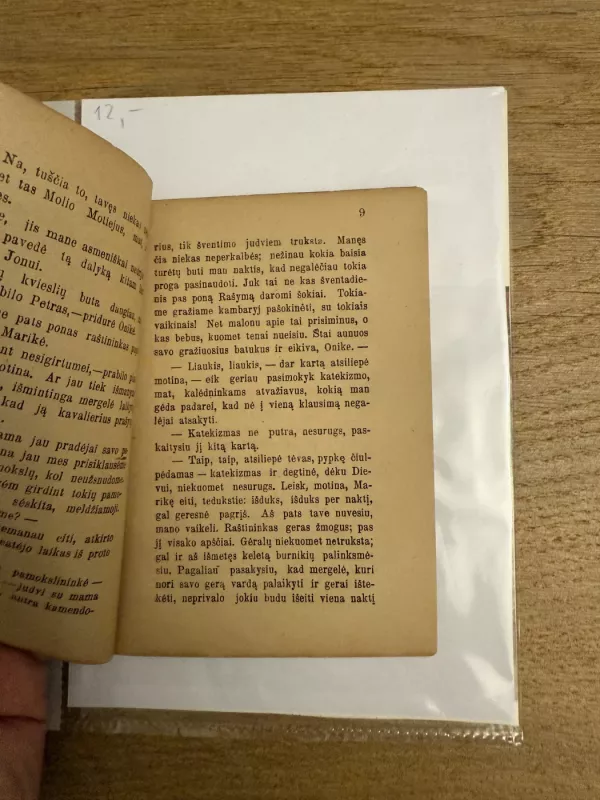 12,-
Na, tuščia to, tavęs niekas
tas Molio Motiejus,
jis mane asmeniškai
pavedė tą dalyką kitam
Jonui.
kvieslių buta daugiau,
Petras,—pridurė Onikė.
pats ponas raštininkas
Marikė.
nesigirtumei,—prabilo
motina. Ar jau tiek išmanyo
išmintinga mergelė
kad ją kavalierius
jau pradėjai savo
jau mes prisiklausėm
kol neužsnudome.
girdint tokių
sėskita, meldžiamoji.
me? —
eiti, atkirto
laikas iš proto
pamokslininkė —
—judvi su mama
putra kamendo-
9
rius, tik šventimo judviem truksta. Manęs
čia niekas neperkalbės; nežinau kokia baisia
turėtų buti mau naktis, kad negalėčiau tokia
proga pasinaudoti. Juk tai ne kas šventadie-
nis pas poną Rašymą daromi šokiai. Tokia-
me gražiame kambaryj pašokinėti, su tokiais
vaikinais! Net malonu apie tai prisiminus, o
kas bebus, kuomet tenai nueisiu. Štai aunuos
savo gražiuosius batukus ir eikiva, Onike. —
— Liaukis, liaukis, — dar kartą atsiliepė
motina, — eik geriau pasimokyk katekizmo,
mat, kalėdninkams atvažiavus, kokią man
gėda padarei, kad nė į vieną klausimą nega-
lėjai atsakyti.
— Katekizmas ne putra, nesurugs, pas-
kaitysiu jį kitą kartą.
— Taip, taip, atsiliepė tėvas, pypkę čiul-
pėdamas — katekizmas ir degtinė, dėku Die-
vui, niekuomet nesurugs. Leisk, motina, Ma-
rikę eiti, tedukstie: išduks, išduks per naktį,
gal geresnė pagrįš. Aš pats tave nuvesiu,
mano vaikeli. Raštininkas geras žmogus; pas
jį visako apščiai. Gėralų niekuomet netruksta;
gal ir aš išmetęs keletą burnikių palinksmė-
siu. Pagaliau pasakysiu, kad mergelė, kuri
nori savo gerą vardą palaikyti ir gerai ište-
kėti, neprivalo jokiu budu išeiti viena naktį